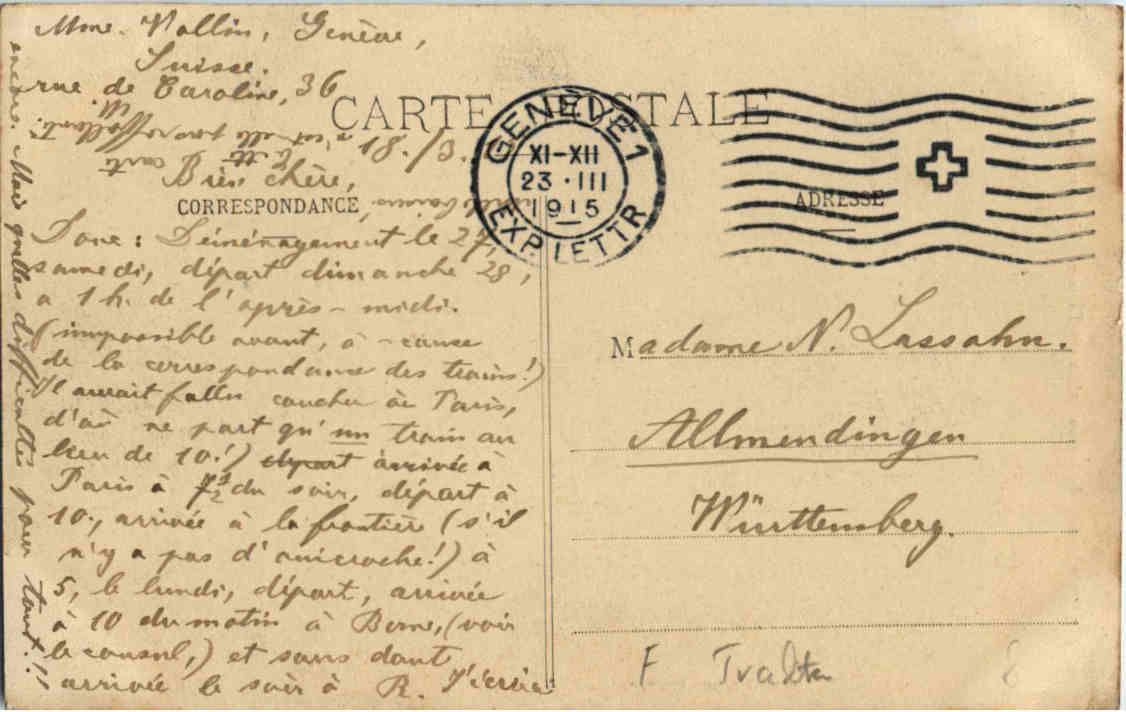 Mme. Vallin, Genève,
Suisse.
rue de Caroline, 36
CARTE POSTALE
18./3.
GENÈVE 1
XI-XII
23·III
1915
EXP. LETTR
Très chère,
CORRESPONDANCE
ADRESSE
Donc: Déménagement le 27,
samedi, départ dimanche 28,
à 1 h. de l'après-midi.
(impossible avant, à-cause
de la correspondance des trains!)
Il aurait fallu coucher à Paris,
d'où ne part qu'un train au
lieu de 10!) départ arrivée à
Paris à 7½ du soir, départ à
10., arrivée à la frontière (s'il
n'y a pas d'anicroche!) à
5, le lundi, départ, arrivée
à 10 du matin à Berne, (voir
le consul,) et sans dout
arrivée le soir à R. J'écrirai
encore. Mais quelles difficultés pour tout!!
Madame N. Lassahn.
Allmendingen
Württemberg.
F